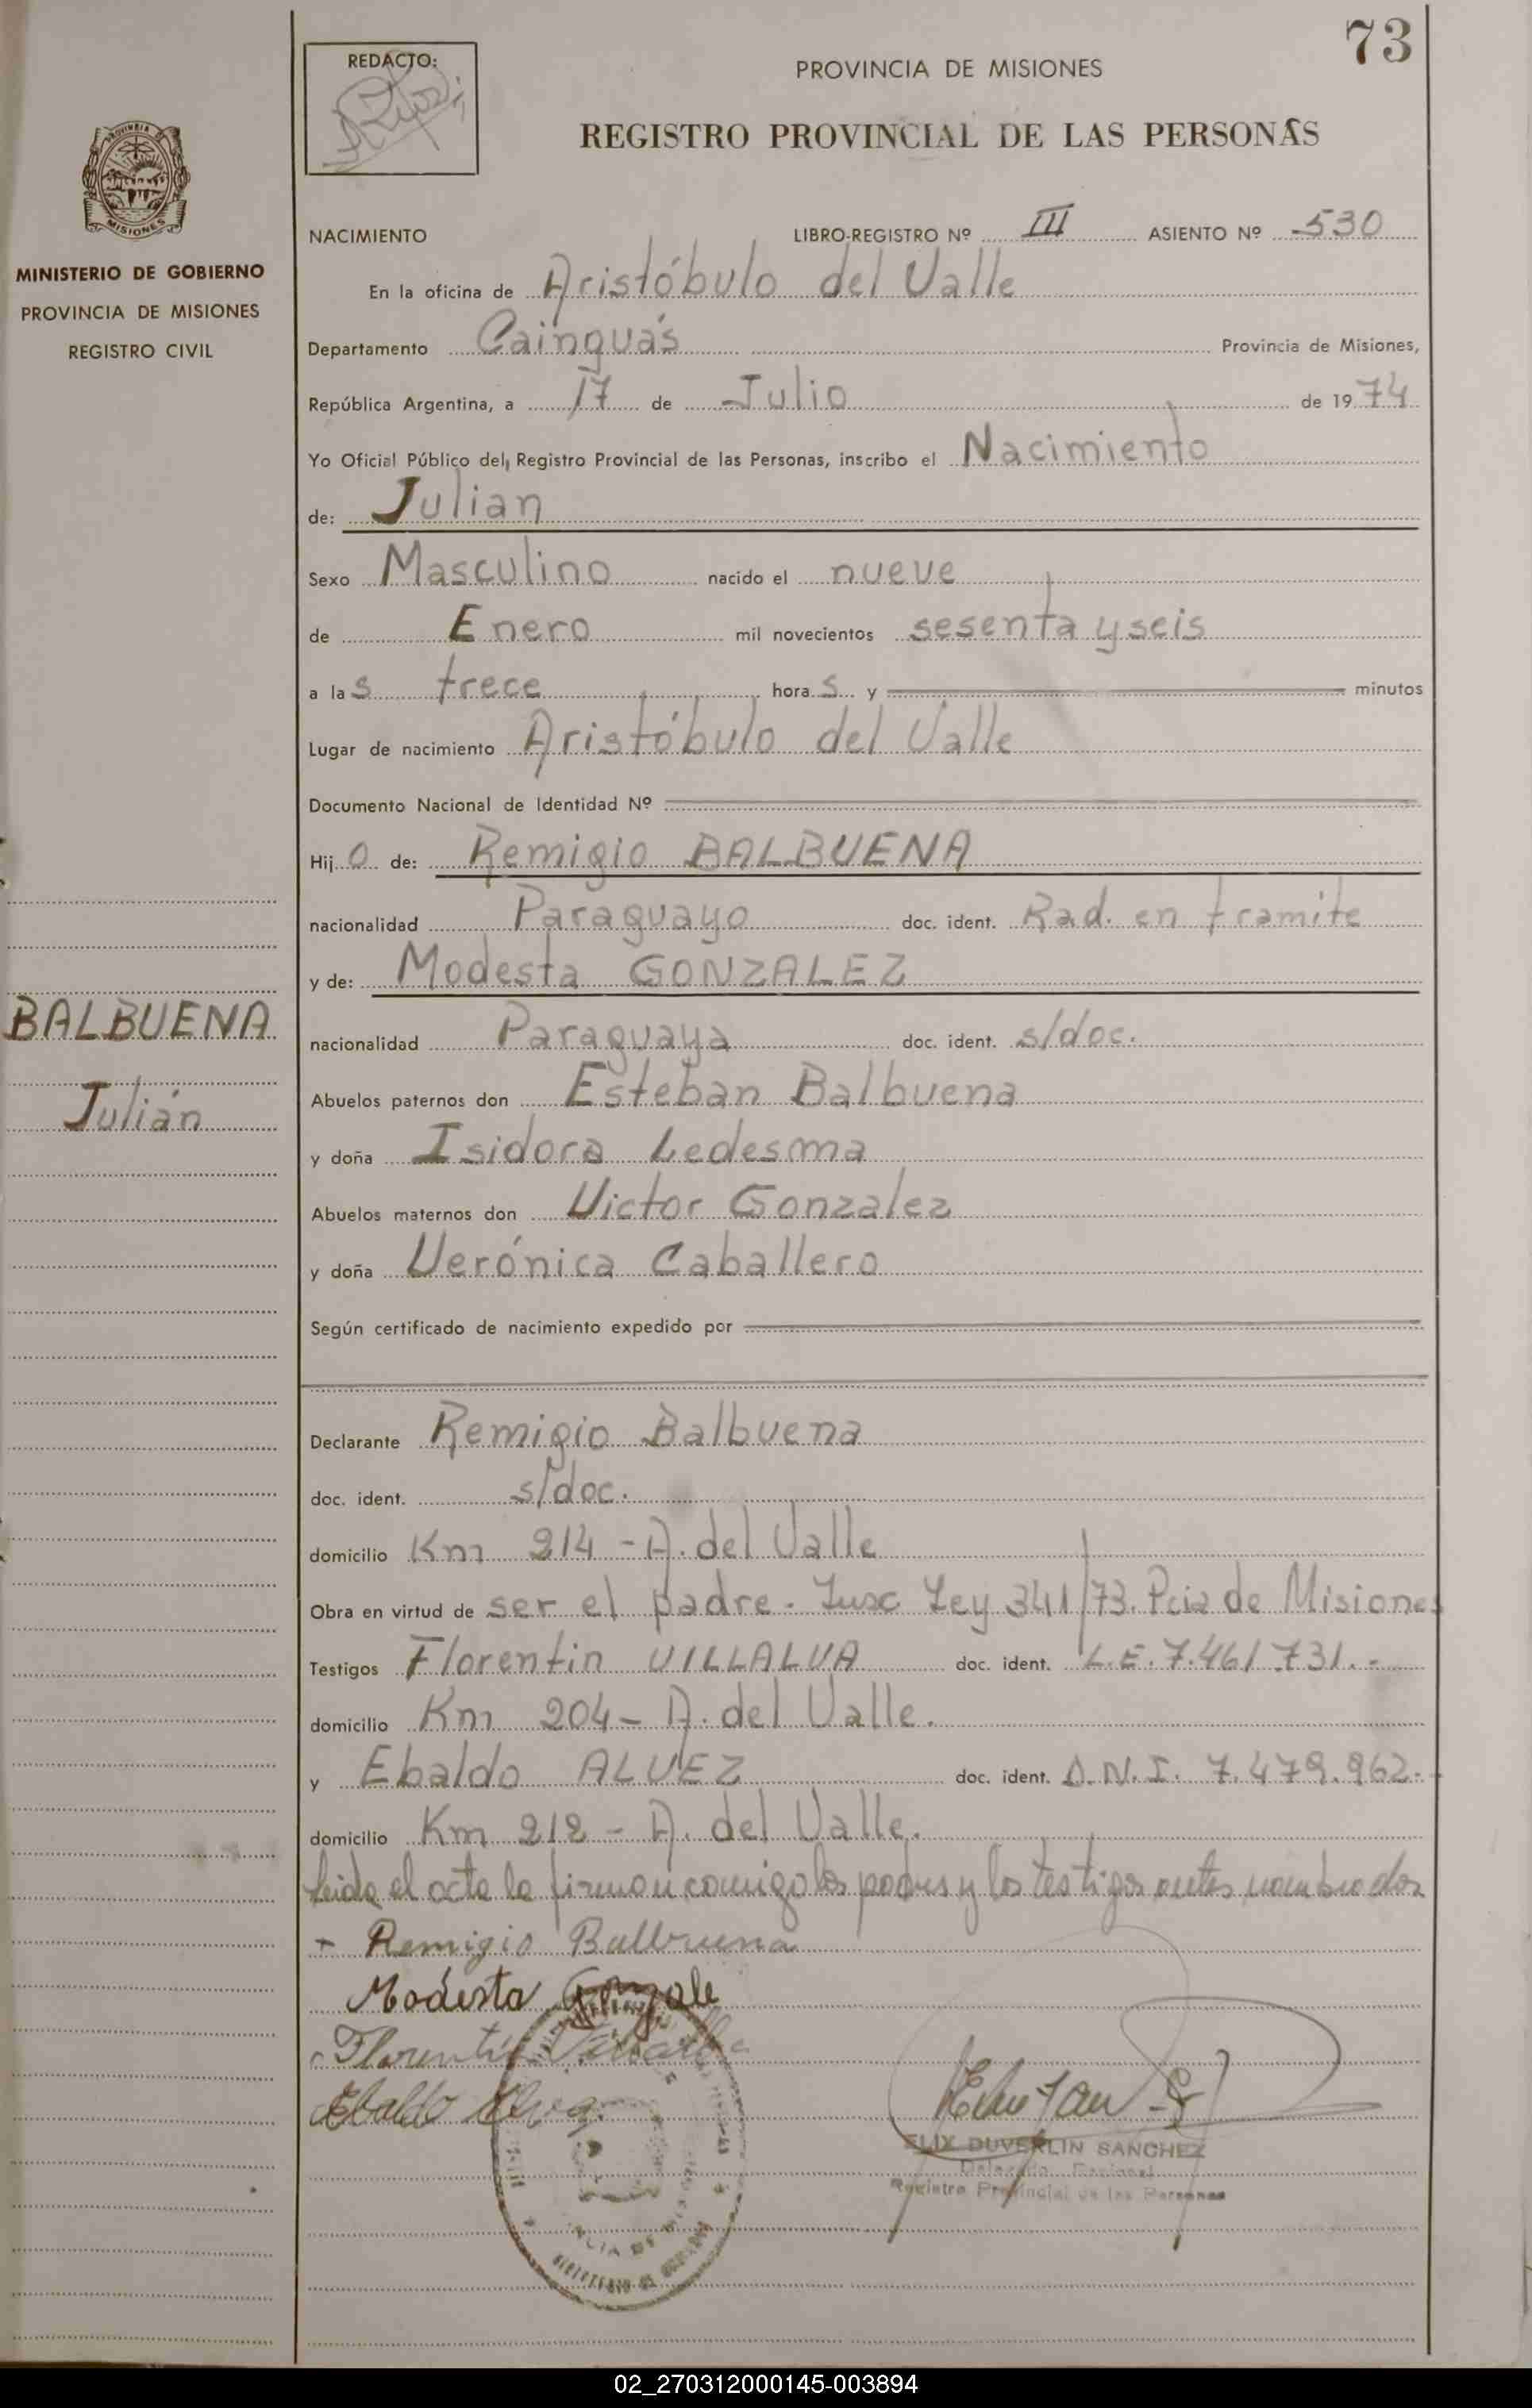 73
REDACTO:
PROVINCIA DE MISIONES
REGISTRO PROVINCIAL DE LAS PERSONAS
MISIONES
MINISTERIO DE GOBIERNO
PROVINCIA DE MISIONES
REGISTRO CIVIL
BALBUENA
Julián
NACIMIENTO LIBRO-REGISTRO Nº III ASIENTO Nº 530
En la oficina de Aristóbulo del Valle
Departamento Cainguás Provincia de Misiones,
República Argentina, a 17 de Julio de 1974
Yo Oficial Público del Registro Provincial de las Personas, inscribo el Nacimiento
de: Julian
Sexo Masculino nacido el nueve
de Enero mil novecientos sesenta y seis
a las trece horas y minutos
Lugar de nacimiento Aristóbulo del Valle
Documento Nacional de Identidad Nº
Hijo de: Remigio BALBUENA
nacionalidad Paraguayo doc. ident. Rad. en tramite
y de: Modesta GONZALEZ
nacionalidad Paraguaya doc. ident. s/doc.
Abuelos paternos don Esteban Balbuena
y doña Isidora Ledesma
Abuelos maternos don Victor Gonzalez
y doña Verónica Caballero
Según certificado de nacimiento expedido por
Declarante Remigio Balbuena
doc. ident. s/doc.
domicilio Km 214 - A. del Valle
Obra en virtud de ser el padre. Insc Ley 341/73. Pcia de Misiones
Testigos Florentin VILLALVA doc. ident. L.E. 7.461.731.-
domicilio Km 204 - A. del Valle.
y Ebaldo ALVEZ doc. ident. D.N.I. 7.479.962.-
domicilio Km 212 - A. del Valle.
Leida el acta la firman conmigo los padres y los testigos antes nombrados
Remigio Balbuena
Modesta Gonzale
Florentin
Ebaldo
ELIX DUVERLIN SANCHEZ
Delegado Regional
Registro Provincial de las Personas
02_270312000145-003894